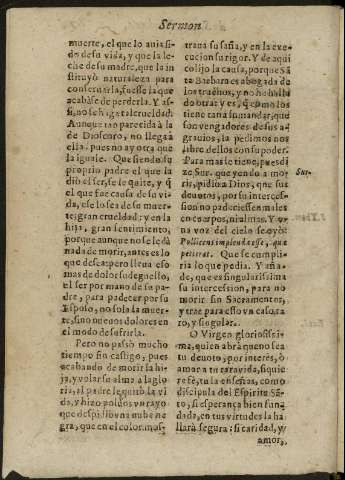 Sermon
muerte, el que lo auia si-
do de su vida, y que la le-
che de su madre, que la in-
stituyò naturaleza para
conseruarla, fuesse la que
acabàse de perderla. Y as-
si, no se higa tal crueldad:
Aunque tan parecida à la
de Dioscoro, no llega à
ella: pues no ay otra que
la iguale. Que siendo su
proprio padre el que la
diò el ser, se le quite, y q̃
el que fue causa de su vi-
da, ese lo sea de su muer-
te; gran crueldad; y en la
hija, gran sentimiento,
porque aunque no se le dà
nada de morir, antes es lo
que desea; pero lleua eso
mas de dolor su deguello,
el ser por mano de su pa-
dre, para padecer por su
Esposo, no sola la muer-
te, sino nueuos dolores en
el modo de sufrirla.
Pero no passò mucho
tiempo sin castigo, pues
acabando de morir la hi-
ja, y volar su alma a la glo-
ria, al padre le quitò la vi-
da, y hizo poluos vn rayo
que despidiò vna nube ne-
gra, que en el color mos-
traua su saña, y en la exe-
cucion su rigor. Y de aqui
colijo la causa, porque Sã-
ta Barbara es abogada de
los truenos, y no ha hallado
otra: y es, que como los
tiene a su mandar, que
son vengadores de sus a-
grauios, la pedimos nos
libre dellos con su poder.
Para mas le tiene, pues di-
ze Sur. que yendo a mo-
rir, pidiò a Dios, que sus
deuotos, por su interces-
sion no padeciessen males
en cuerpos, ni almas. Y v-
na voz del cielo se oyò:
Pollicens implenda esse, quæ
petierat. Que se cumpli-
ria lo que pedia. Y aña-
de, que es singularissima
su intercession, para no
morir sin Sacramentos,
y trae para esto vn caso, ra-
ro, y singular.
O Virgen gloriosissi-
ma, quien abrà que no sea
tu deuoto, por interès, ò
amor a tu rara vida, si quie-
re fè, tu la enseñas, como
discipula del Espiritu Sã-
to, si esperança bien fun-
dada, en tus virtudes la ha-
llarà segura: si caridad, y
amor,
Sur.